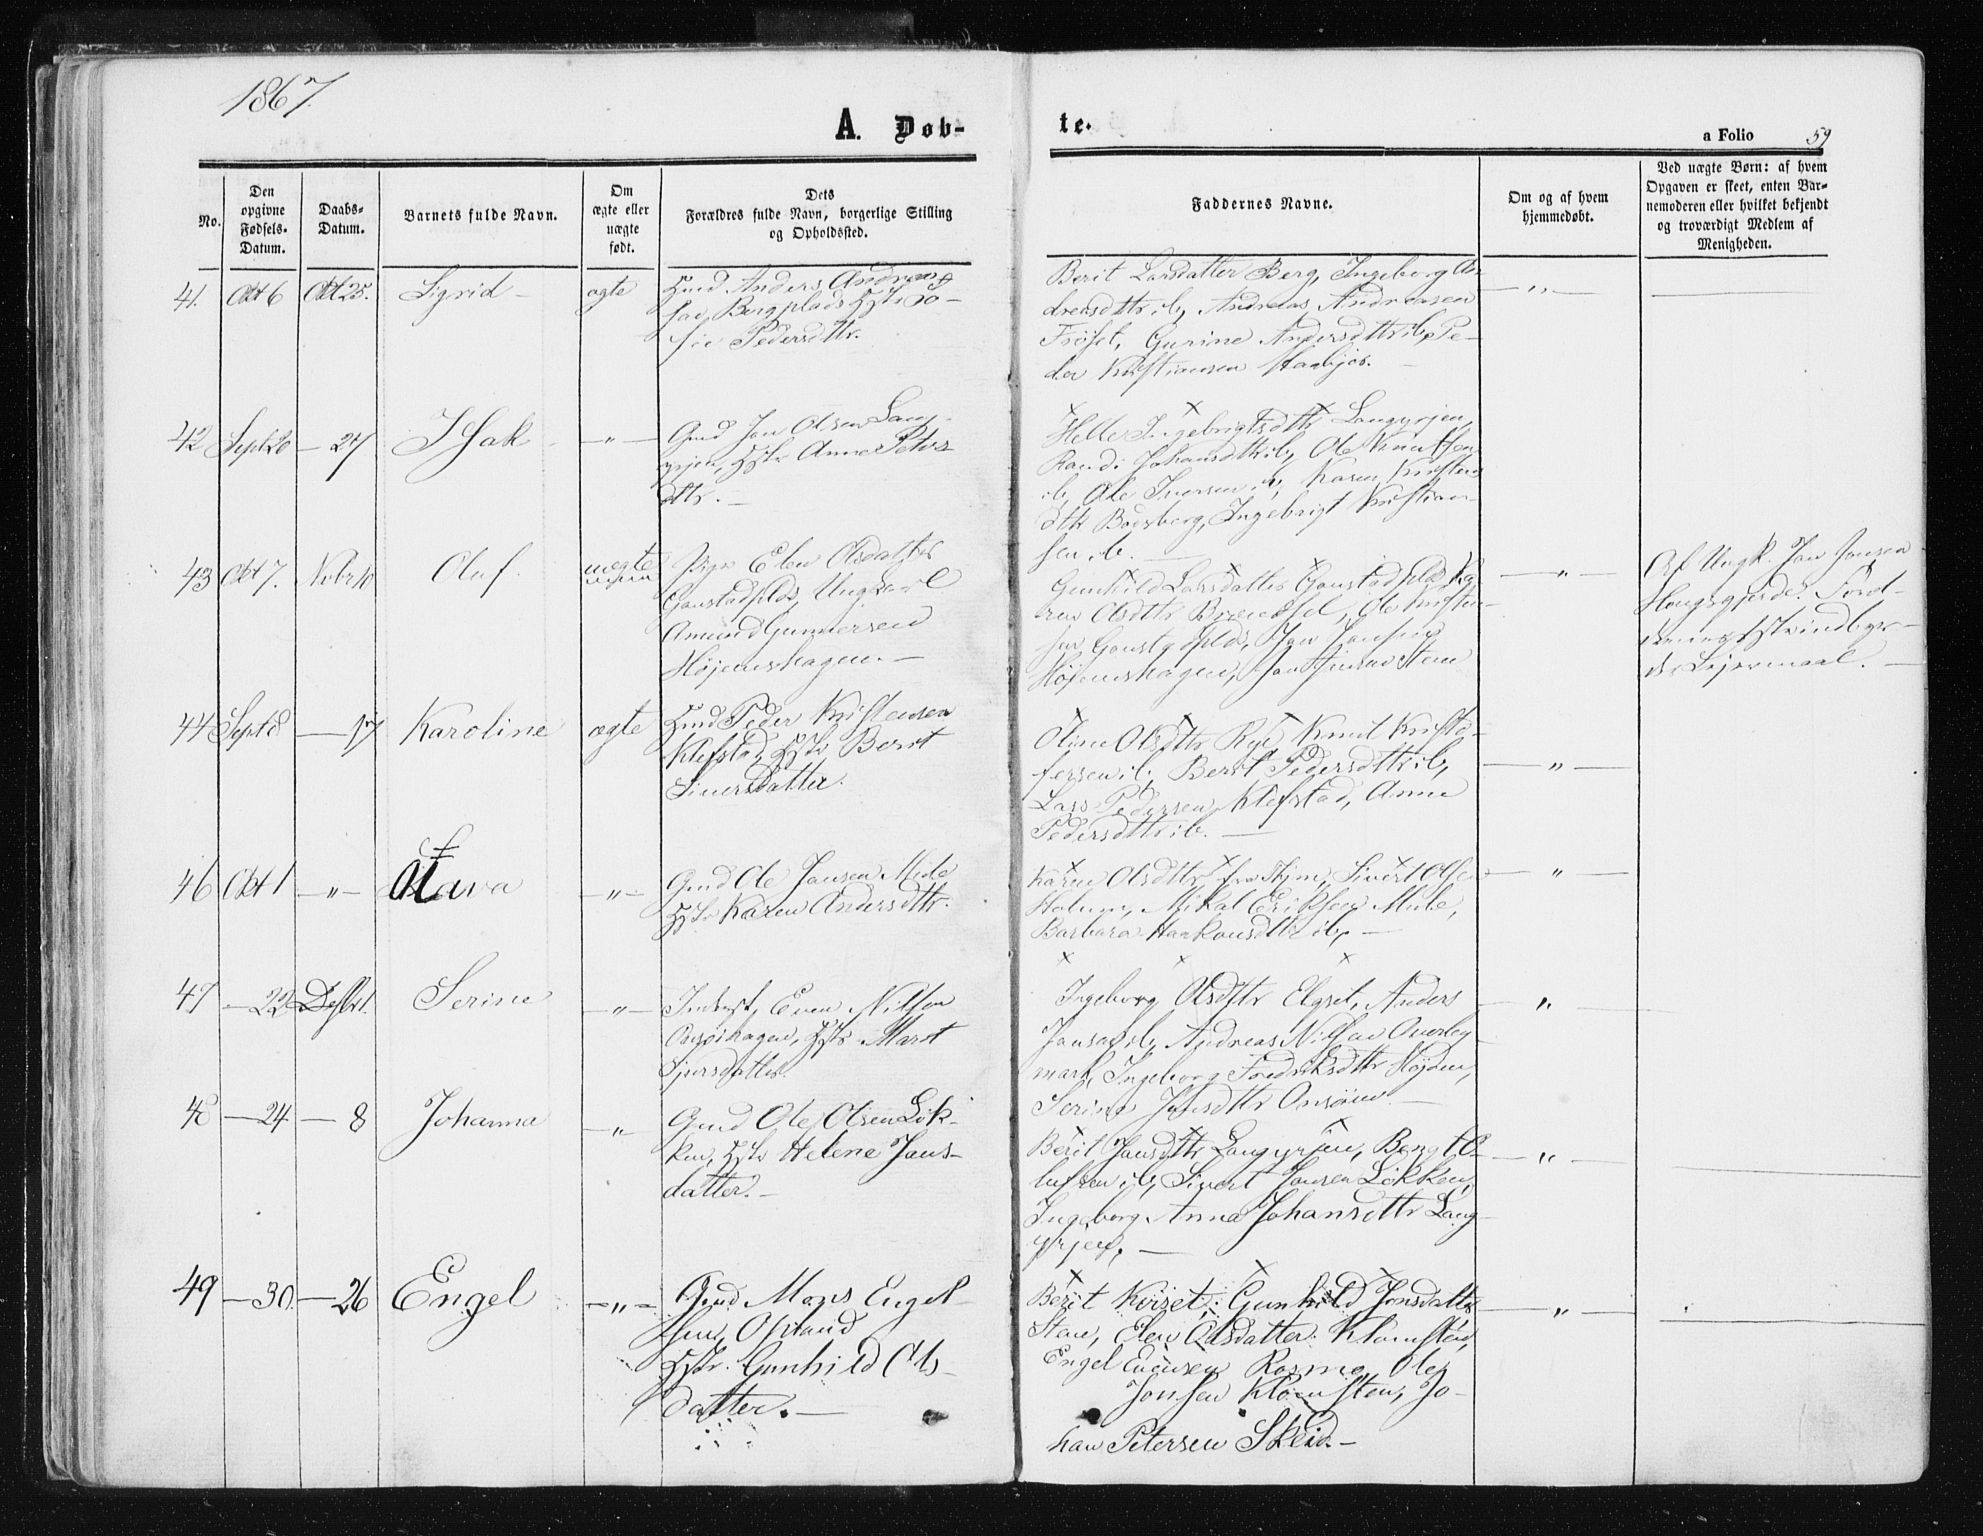 1867.
A. Døb-
te.
a Folio 59
No.
Den
opgivne
Fødsels-
Datum.
Daabs-
Datum.
Barnets fulde Navn.
Om
ægte eller
uægte
født.
Dets
Forældres fulde Navn, borgerlige Stilling
og Opholdssted.
Faddernes Navne.
Om og af hvem
hjemmedøbt.
Ved uægte Børn: af hvem
Opgaven er skeet, enten Bar-
nemoderen eller hvilket bekjendt
og troværdigt Medlem af
Menigheden.
41. Okt 6 Okt 25. Sigrid - ægte
Anders
Bergplads
Pedersdttr.
Berit Larsdatter Berg, Ingeborg An-
dreasdttr ib, Andreas Andreasen
Gurine Andersdttr ib, Pe-
der Kristiansen
- " -
42 Sept 20 - 27 Isak - " -
Gmd Jon Olsen Lang-
yrjen, Hstr Anne Peters-
dttr. -
Helle Ingebrigtsdttr Langyrjen,
Randi Johansdttr ib, Ole Knutsen
ib, Ole Iversen ib, Karen Kristens
dttr Ingebrigt Kristian-
sen ib. -
43 Okt 7. Novbr 10 Oluf. uægte
Pige Elen Olsdatter
Ganstadplds, Ungkarl
Amund Gunnersen
Højemshagen. -
Gunhild Larsdatter Ganstadplds, Ka-
ren Olsdttr Ole Kristen-
sen Jon Jonsen
Højemshagen,
- " -
Af Ungk. Jon Jonsen
Lejermaal. -
44 Sept 8 - 17 Karoline ægte
Hmd Peder Kristensen
Klefstad, Hstr Berit
Siversdatter.
Oline Olsdttr Rye, Knut Kristo-
fersen ib, Berit Pedersdttr ib,
Lars Pedersen Klefstad, Anne
Pedersdttr ib. -
- " -
46 Okt 1 - " - Olava - " -
Gmd Ole Jansen Mule
Hstr Karen Andersdttr.
Karen Olsdttr Sivert Olsen
Holum, Mikal Eriksen Mule,
Barbara Haakonsdttr ib, -
- " -
47 - 22 Desbr 1. Serine - " -
Inderst, Even Nilsen
Onsøihagen, Hstr Marit
Sjursdatter.
Ingeborg Olsdttr Elgset, Anders
Jansen ib, Andreas Nilsen Overby
mark, Ingeborg Fredriksdttr Højem,
Serine Jonsdttr Onsøien. -
- " -
48 - 24 - 8 Johanna - " -
Gmd Ole Olsen Løk-
ken, Hstr Helene Jans-
datter. -
Berit Jansdttr Langyrjen, Bengt O-
lufsen ib, Sivert Jansen Løkken,
Ingeborg Anna Johansdttr Lang-
yrjen, -
- " -
49 - 30. - 26 Engel - " -
Gmd Mons Engel-
sen
Hstr. Gunhild Ols-
datter. -
Berit Kviset, Gunhild Jonsdatter
Stene, Elen Olsdatter Klomsten,
Engel Evensen Rosmo, Ole
Jonsen Klomsten, Jo-
han Petersen Skeid. -
- " -